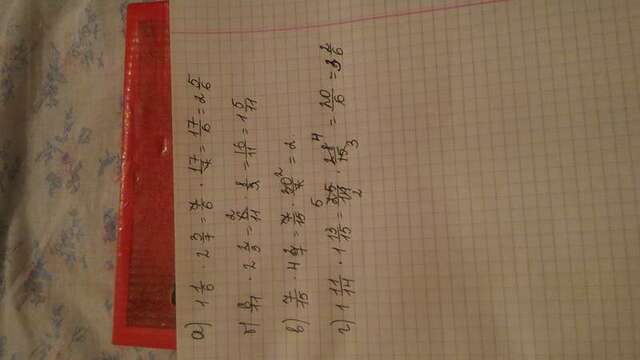 а) 1 1/6 · 2 3/7 = 7/6 · 17/7 = 17/6 = 2 5/6
б) 6/11 · 2 2/3 = 6/11 · 8/3 = 16/11 = 1 5/11
в) 7/15 · 4 2/7 = 7/15 · 30/7 = 2
г) 1 11/14 · 1 13/15 = 25/14 · 28/15 = 20/6 = 3 2/6